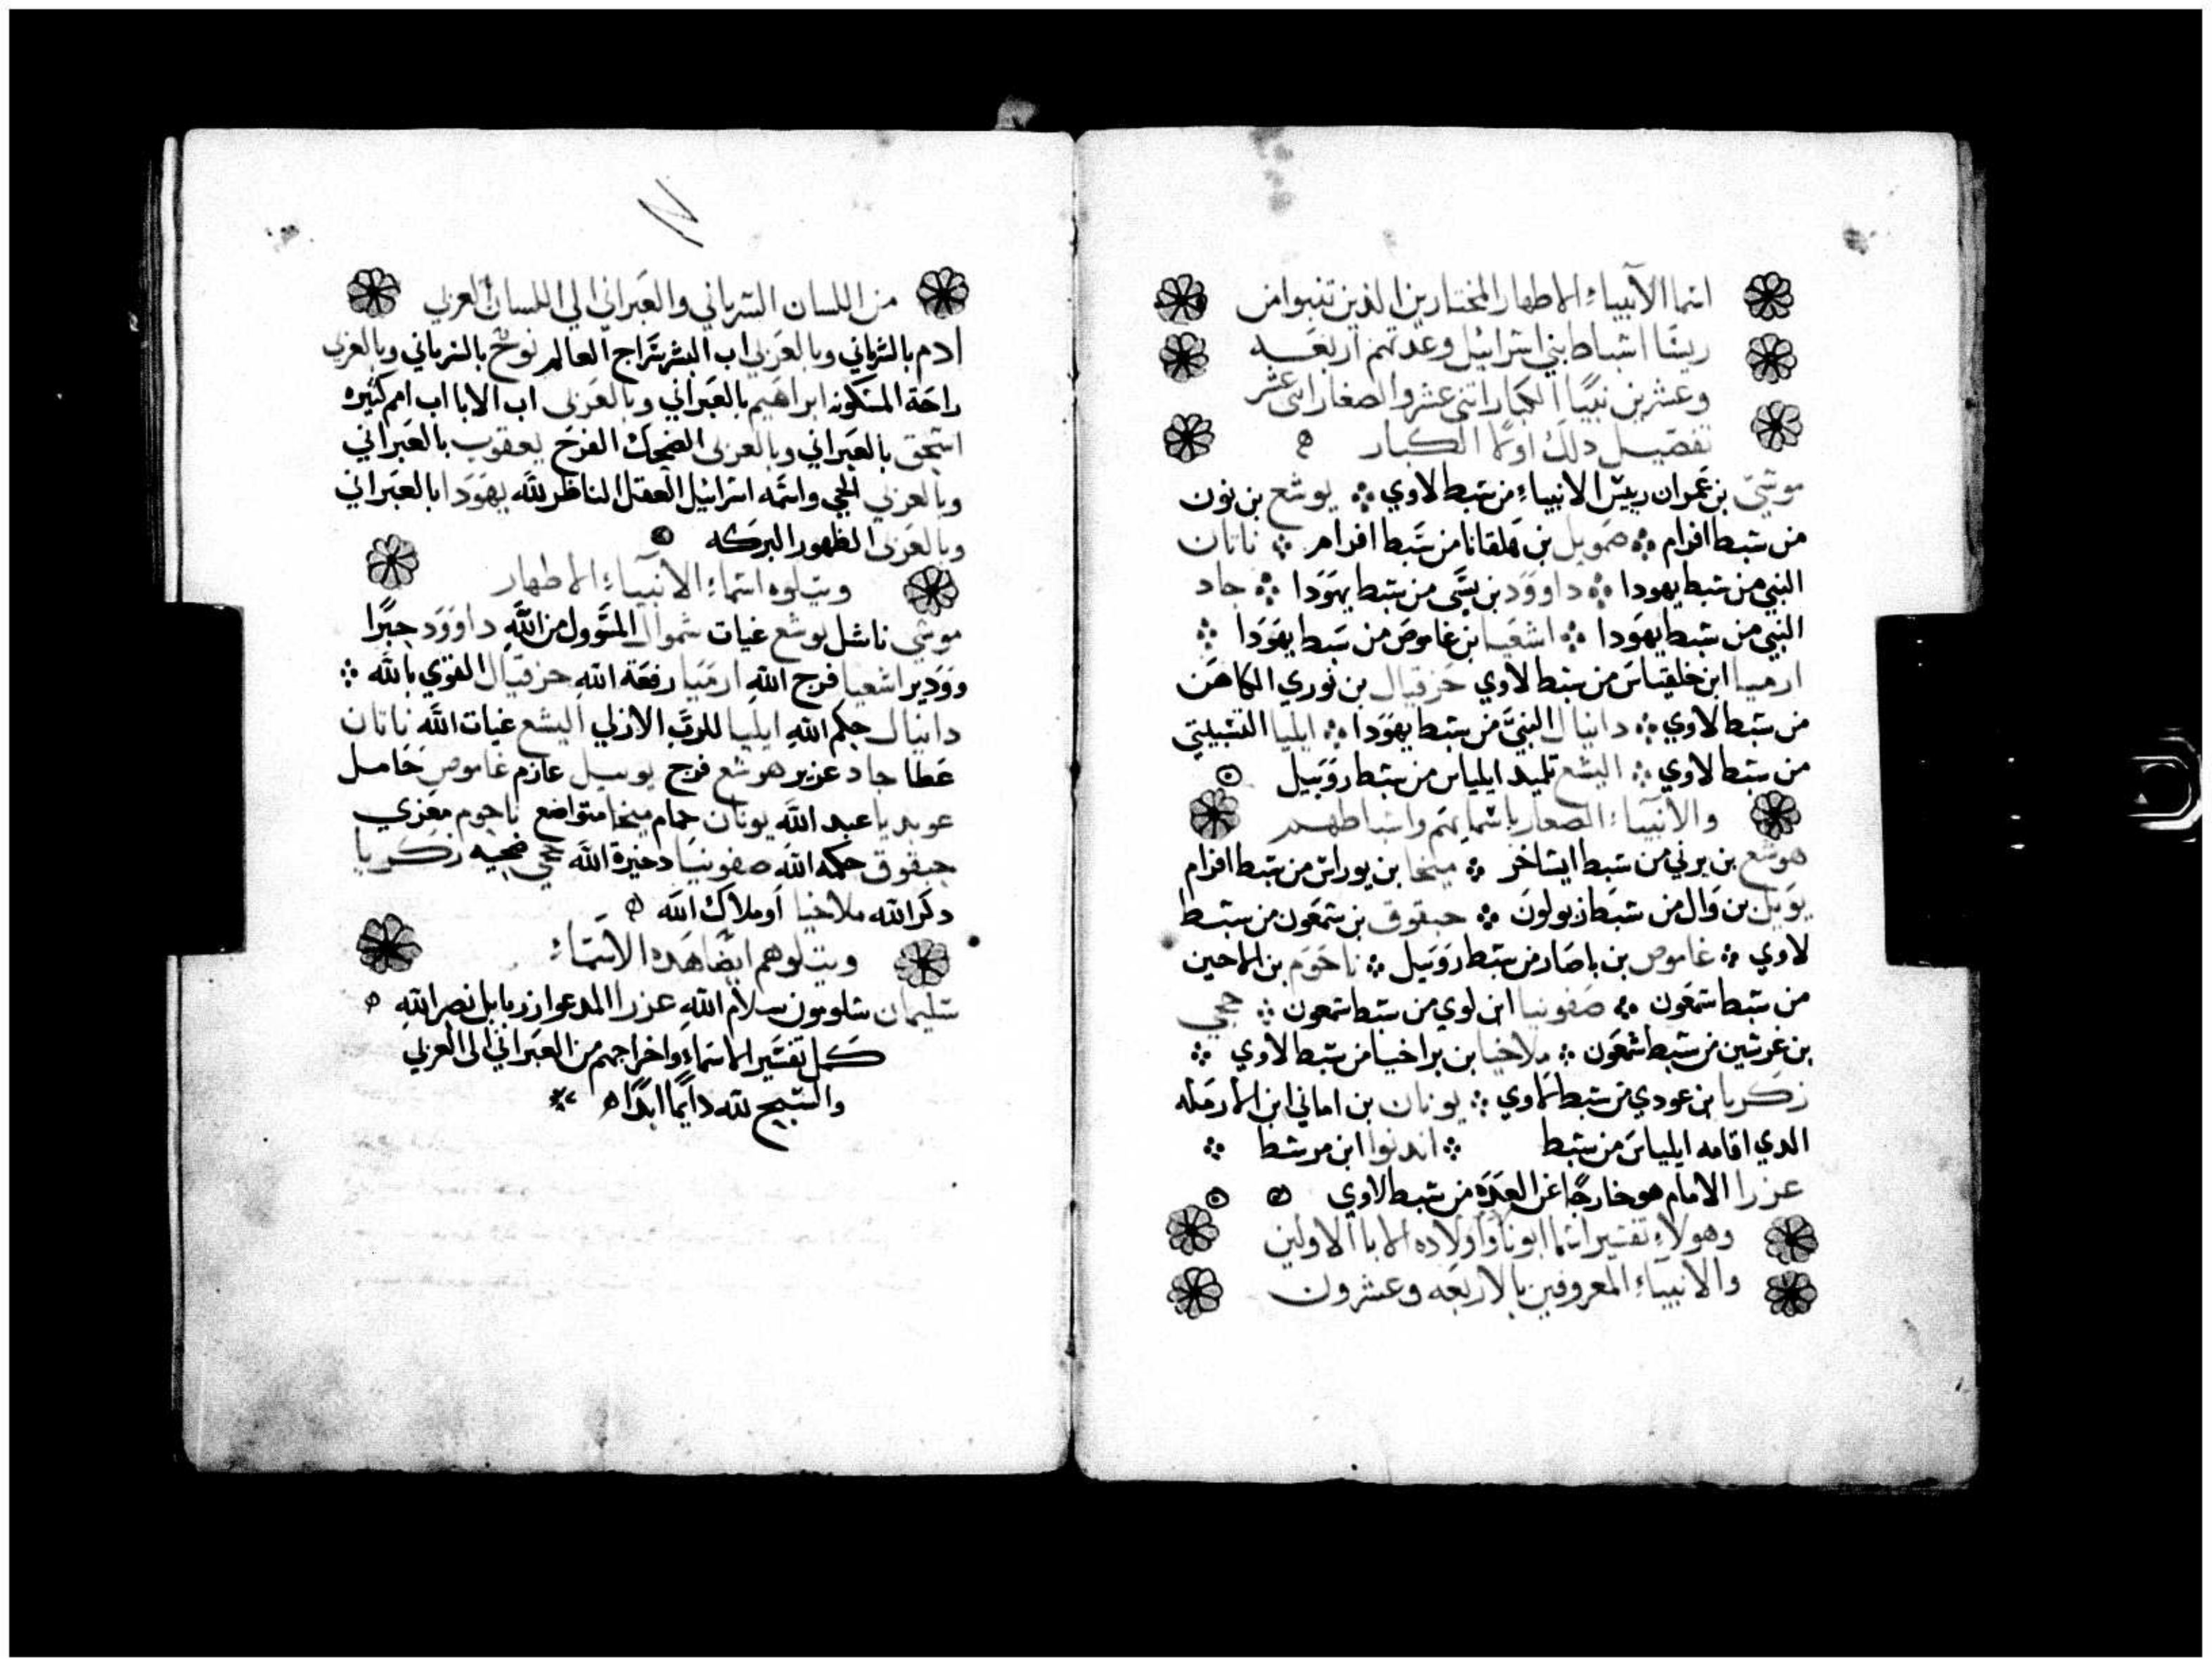 اسما الانبياء الاطهار المختارين الذين تنبوا من
اسباط بني اسرائيل وعدتهم اربعه
وعشرين نبيًا الكبار اثني عشر والصغار اثني عشر
تفصيل دلك اولا الكبار
موسي بن عمران رييس الانبياء من سبط لاوي ܀ يوشع بن نون
من سبط افرام ܀ صمويل بن هلقانا من سبط افرام ܀ ناتان
النبي من سبط يهودا ܀ داوود بن يسي من سبط يهودا ܀ جاد
النبي من سبط يهودا ܀ اشعيا بن غاموص من سبط يهودا ܀
ارميا ابن خلقياس من سبط لاوي حزقيال بن نوري الكاهن
من سبط لاوي ܀ دانيال النبي من سبط يهودا ܀ ايليا التشبيتي
من سبط لاوي ܀ اليشع تلميد ايلياس من سبط روبيل
والانبياء الصغار باسمايهم واسباطهم
هوشع بن برني من سبط ايساخر ܀ ميخا بن يوراس من سبط افرام
يوييل بن وال من سبط زبولون ܀ حبقوق بن شمعون من سبط
لاوي ܀ غاموص بن باصار من سبط روبيل ܀ ناحوم بن الماحين
من سبط شمعون ܀ صفونيا ابن لوي من سبط شمعون ܀ حجي
بن غرشين من سبط شمعون ܀ ملاخيا بن براخيا من سبط لاوي ܀
زكريا بن عودي من سبط لاوي ܀ يونان بن اماني ابن الارمله
الدي اقامه ايلياس من سبط ܀ ابن
عزرا الامام هو خارجًا عن العده من سبط لاوي
وهولاء تفسير اسما ابونا واولاده الابا الاولين
والانبياء المعروفين بالاربعه وعشرون
من اللسان السرياني والعبراني الي اللسان العربي
ادم بالسرياني وبالعربي اب البشر سراج العالم نوح بالسرياني وبالعربي
راحة المسكونه ابراهيم بالعبراني وبالعربي اب الابا اب امم كثيره
اسحق بالعبراني وبالعربي الضحك الفرح يعقوب بالعبراني
وبالعربي واسمه اسرائيل العقل الناظر لله يهودا بالعبراني
وبالعربي الظهور البركه
ويتلوه اسماء الانبياء الاطهار
موسي ناشل يوشع غيات شموال المسوول من الله داوود
اشعيا فرج الله ارميا رفعة الله حزقيال القوي بالله ܀
دانيال حكم الله ايليا للرب الازلي اليشع غيات الله ناتان
عطا جاد عزيز هوشع فرج يوييل عازم غاموص حامل
عوبديا عبد الله يونان حمام ميخا متواضع ناحوم معزي
حبقوق حكمه الله صفونيا دخيرة الله حجي ضحيه زكريا
دكر الله ملاخيا او ملاك الله
ويتلوهم ايضا هده الاسماء
سليمان شلومون سلام الله عزرا المدعوا زربابل نصر الله
كمل تفسير الاسماء واخراجهم من العبراني الي العربي
والتسبيح لله دايمًا ابدًا